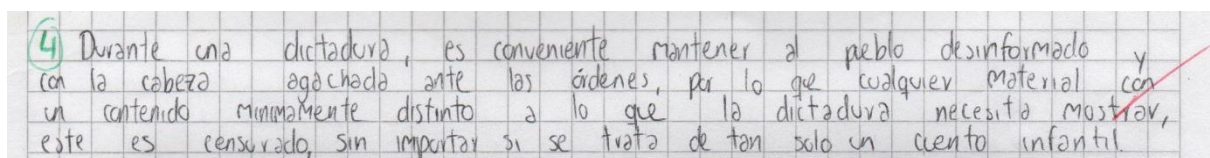 4 Durante una dictadura, es conveniente mantener al pueblo desinformado y
con la cabeza agachada ante las órdenes, por lo que cualquier material con
un contenido minimamente distinto a lo que la dictadura necesita mostrar,
este es censurado, sin importar si se trata de tan solo un cuento infantil.